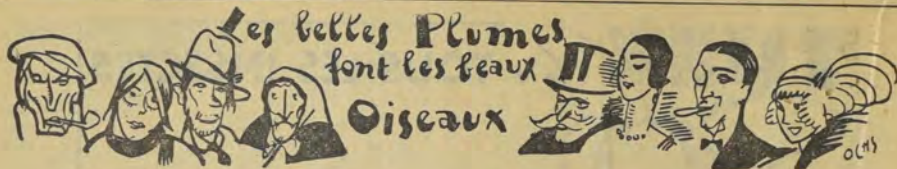 Les belles Plumes
font les beaux
Oiseaux
OCHS